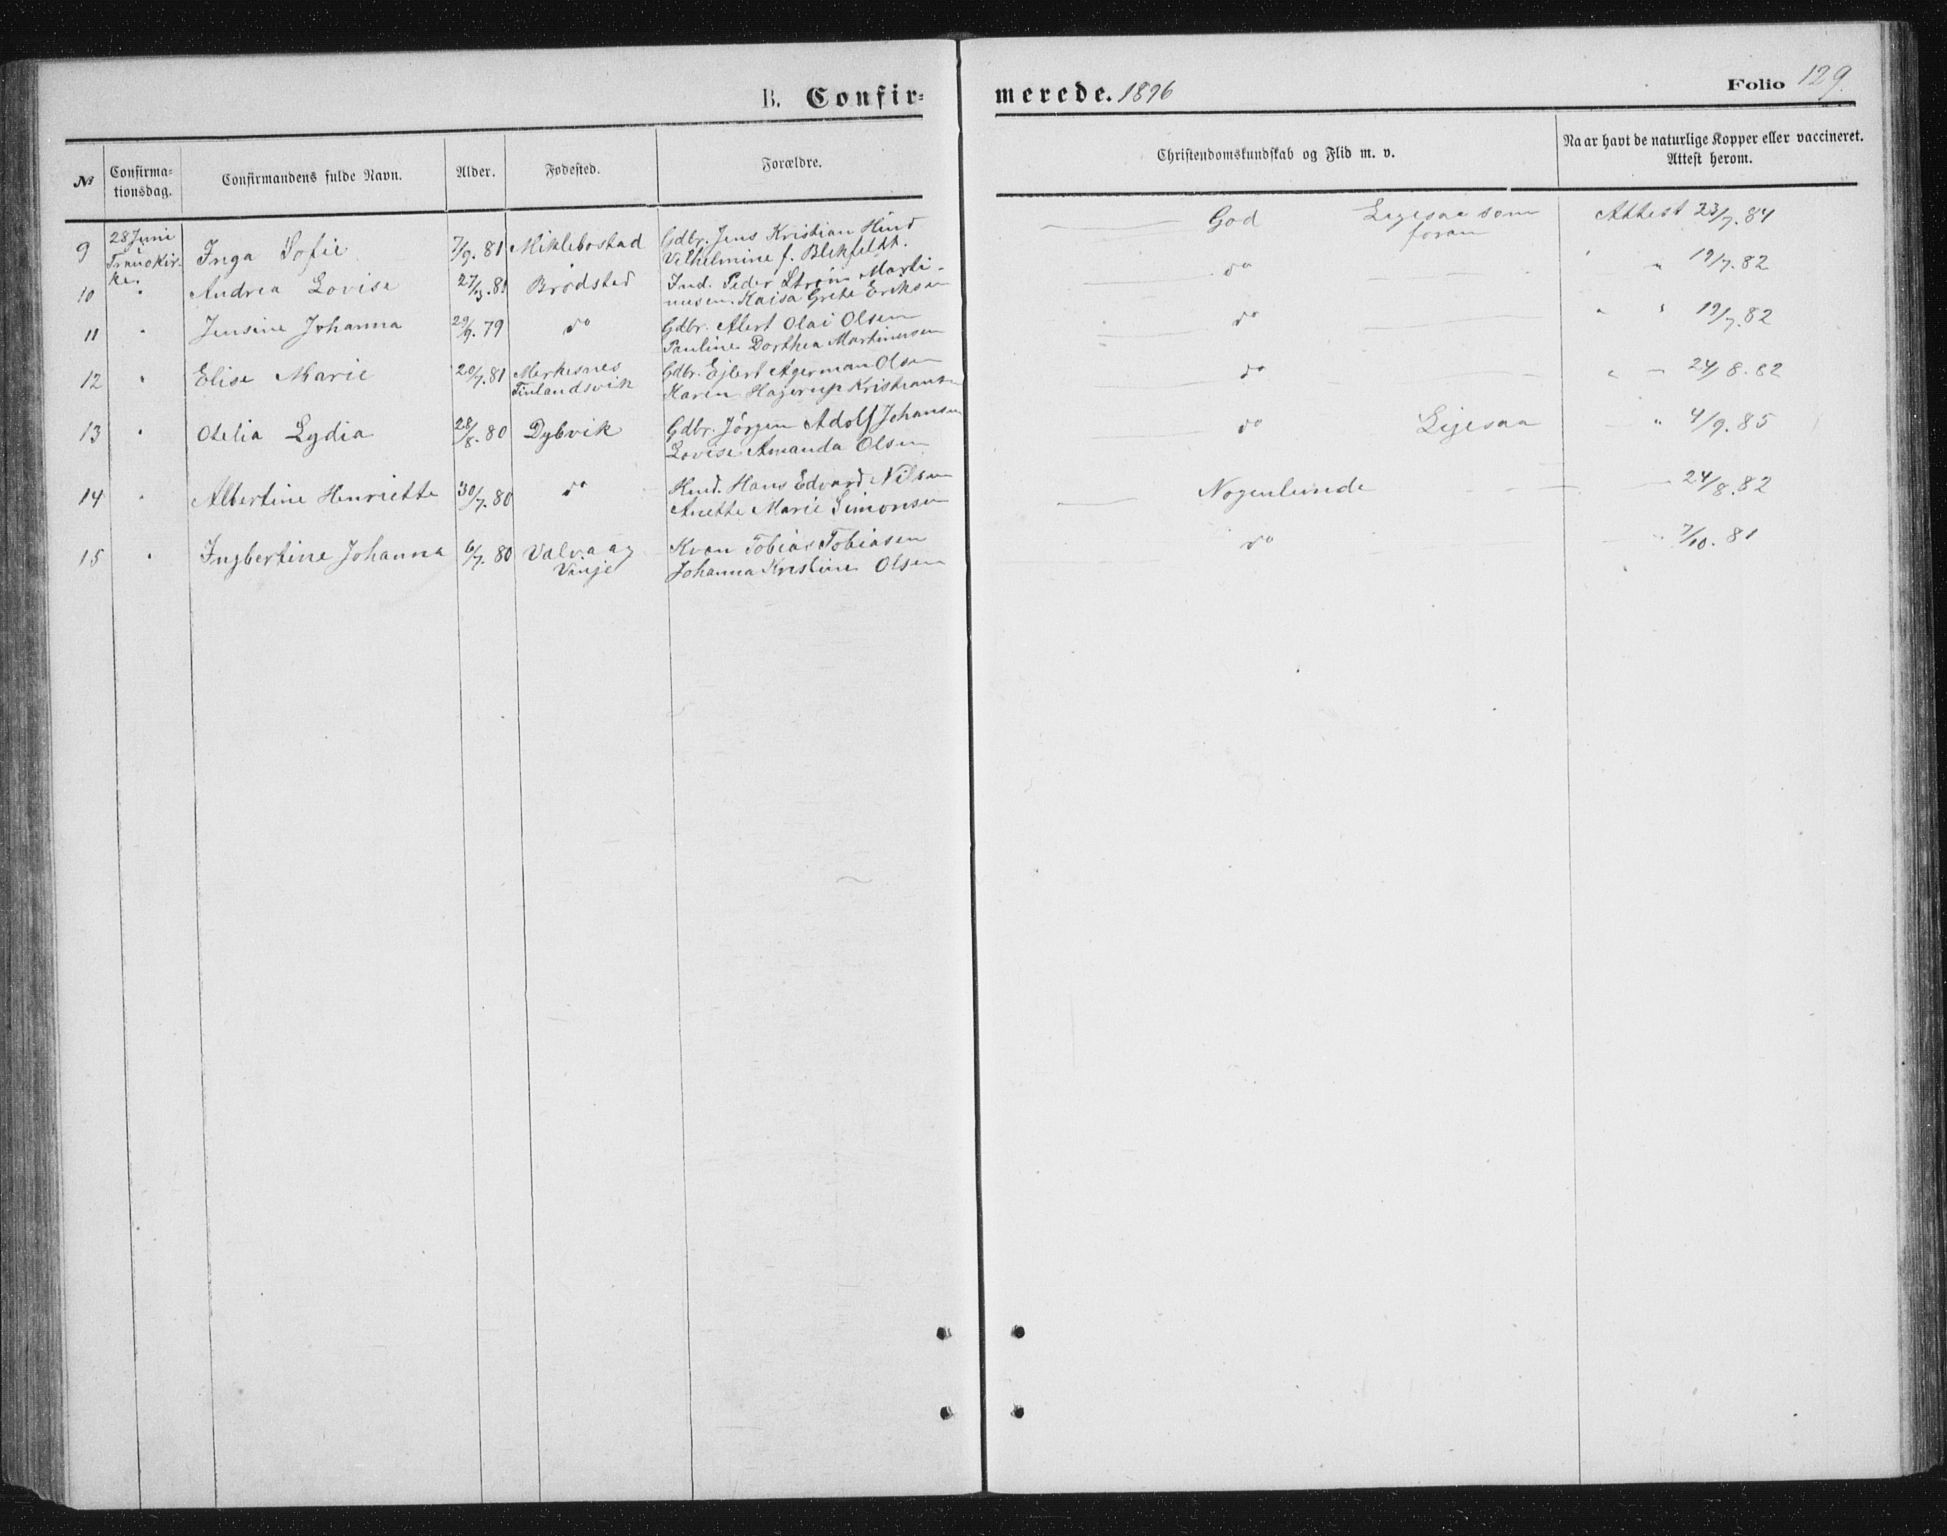 B. Confir=merede. 1896 Folio 129.
№ Confirma=tionsdag. Confirmandens fulde Navn. Alder. Fødested. Forældre. Christendomskundskab og Flid m. v. Naar havt de naturlige Kopper eller vaccineret. Attest herom.
9 28 Juni Tranø Kirke. Inga Sofie 7/9. 81 Miklebostad Gdbr. Jens Kristian Hind God Ligesaa som foran Attest 23/7. 84
Vilhelmine f. Blikfeldt.
10 " Andrea Lovise 27/3. 81 Brødstad Ind. Peder Strøm Marti- do " 19/7. 82
nusen. Kaisa Grete Eriksen
11 " Jensine Johanna 29/9. 79 do Gdbr. Alert Olai Olsen do " " 19/7. 82
Pauline Dorthea Martinussen
12 " Elise Marie 20/7. 81 Merkesnes Gdbr. Ejlert Agerman Olsen do " 24/8. 82
Finlandsvik Karen Hagerup Kristiansen
13 " Otelia Lydia 28/8. 80 Dybvik Gdbr. Jørgen Adolf Johansen do Ligesaa " 4/9. 85
Lovise Amanda Olsen
14 " Albertine Henriette 30/7. 80 do Hmd. Hans Edvard Nilsen Nogenlunde 24/8. 82
Anette Marie Simonsen
15 " Ingbertine Johanna 6/7. 80 Valvaag Kvan Tobias Tobiasen do " 7/10. 81
Vinje Johanna Kristine Olsen